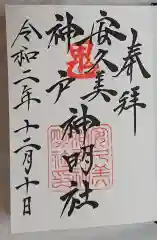 奉拝
安久美
神戸
神明社
令和二年十二月十日